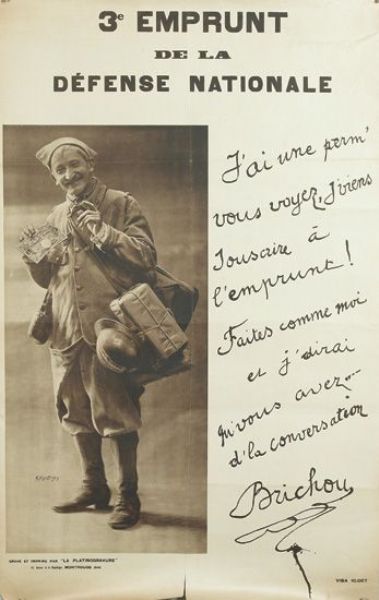 3e EMPRUNT
DE LA
DÉFENSE NATIONALE
J'ai une perm'
vous voyez, J'viens
Souscrire à
l'emprunt!
Faites comme moi
et j'dirai
qu'vous avez...
d'la conversation
Brichou
GRAVÉ ET IMPRIMÉ PAR "LA PLATINOGRAVURE"
MONTROUGE
VISA 10.007